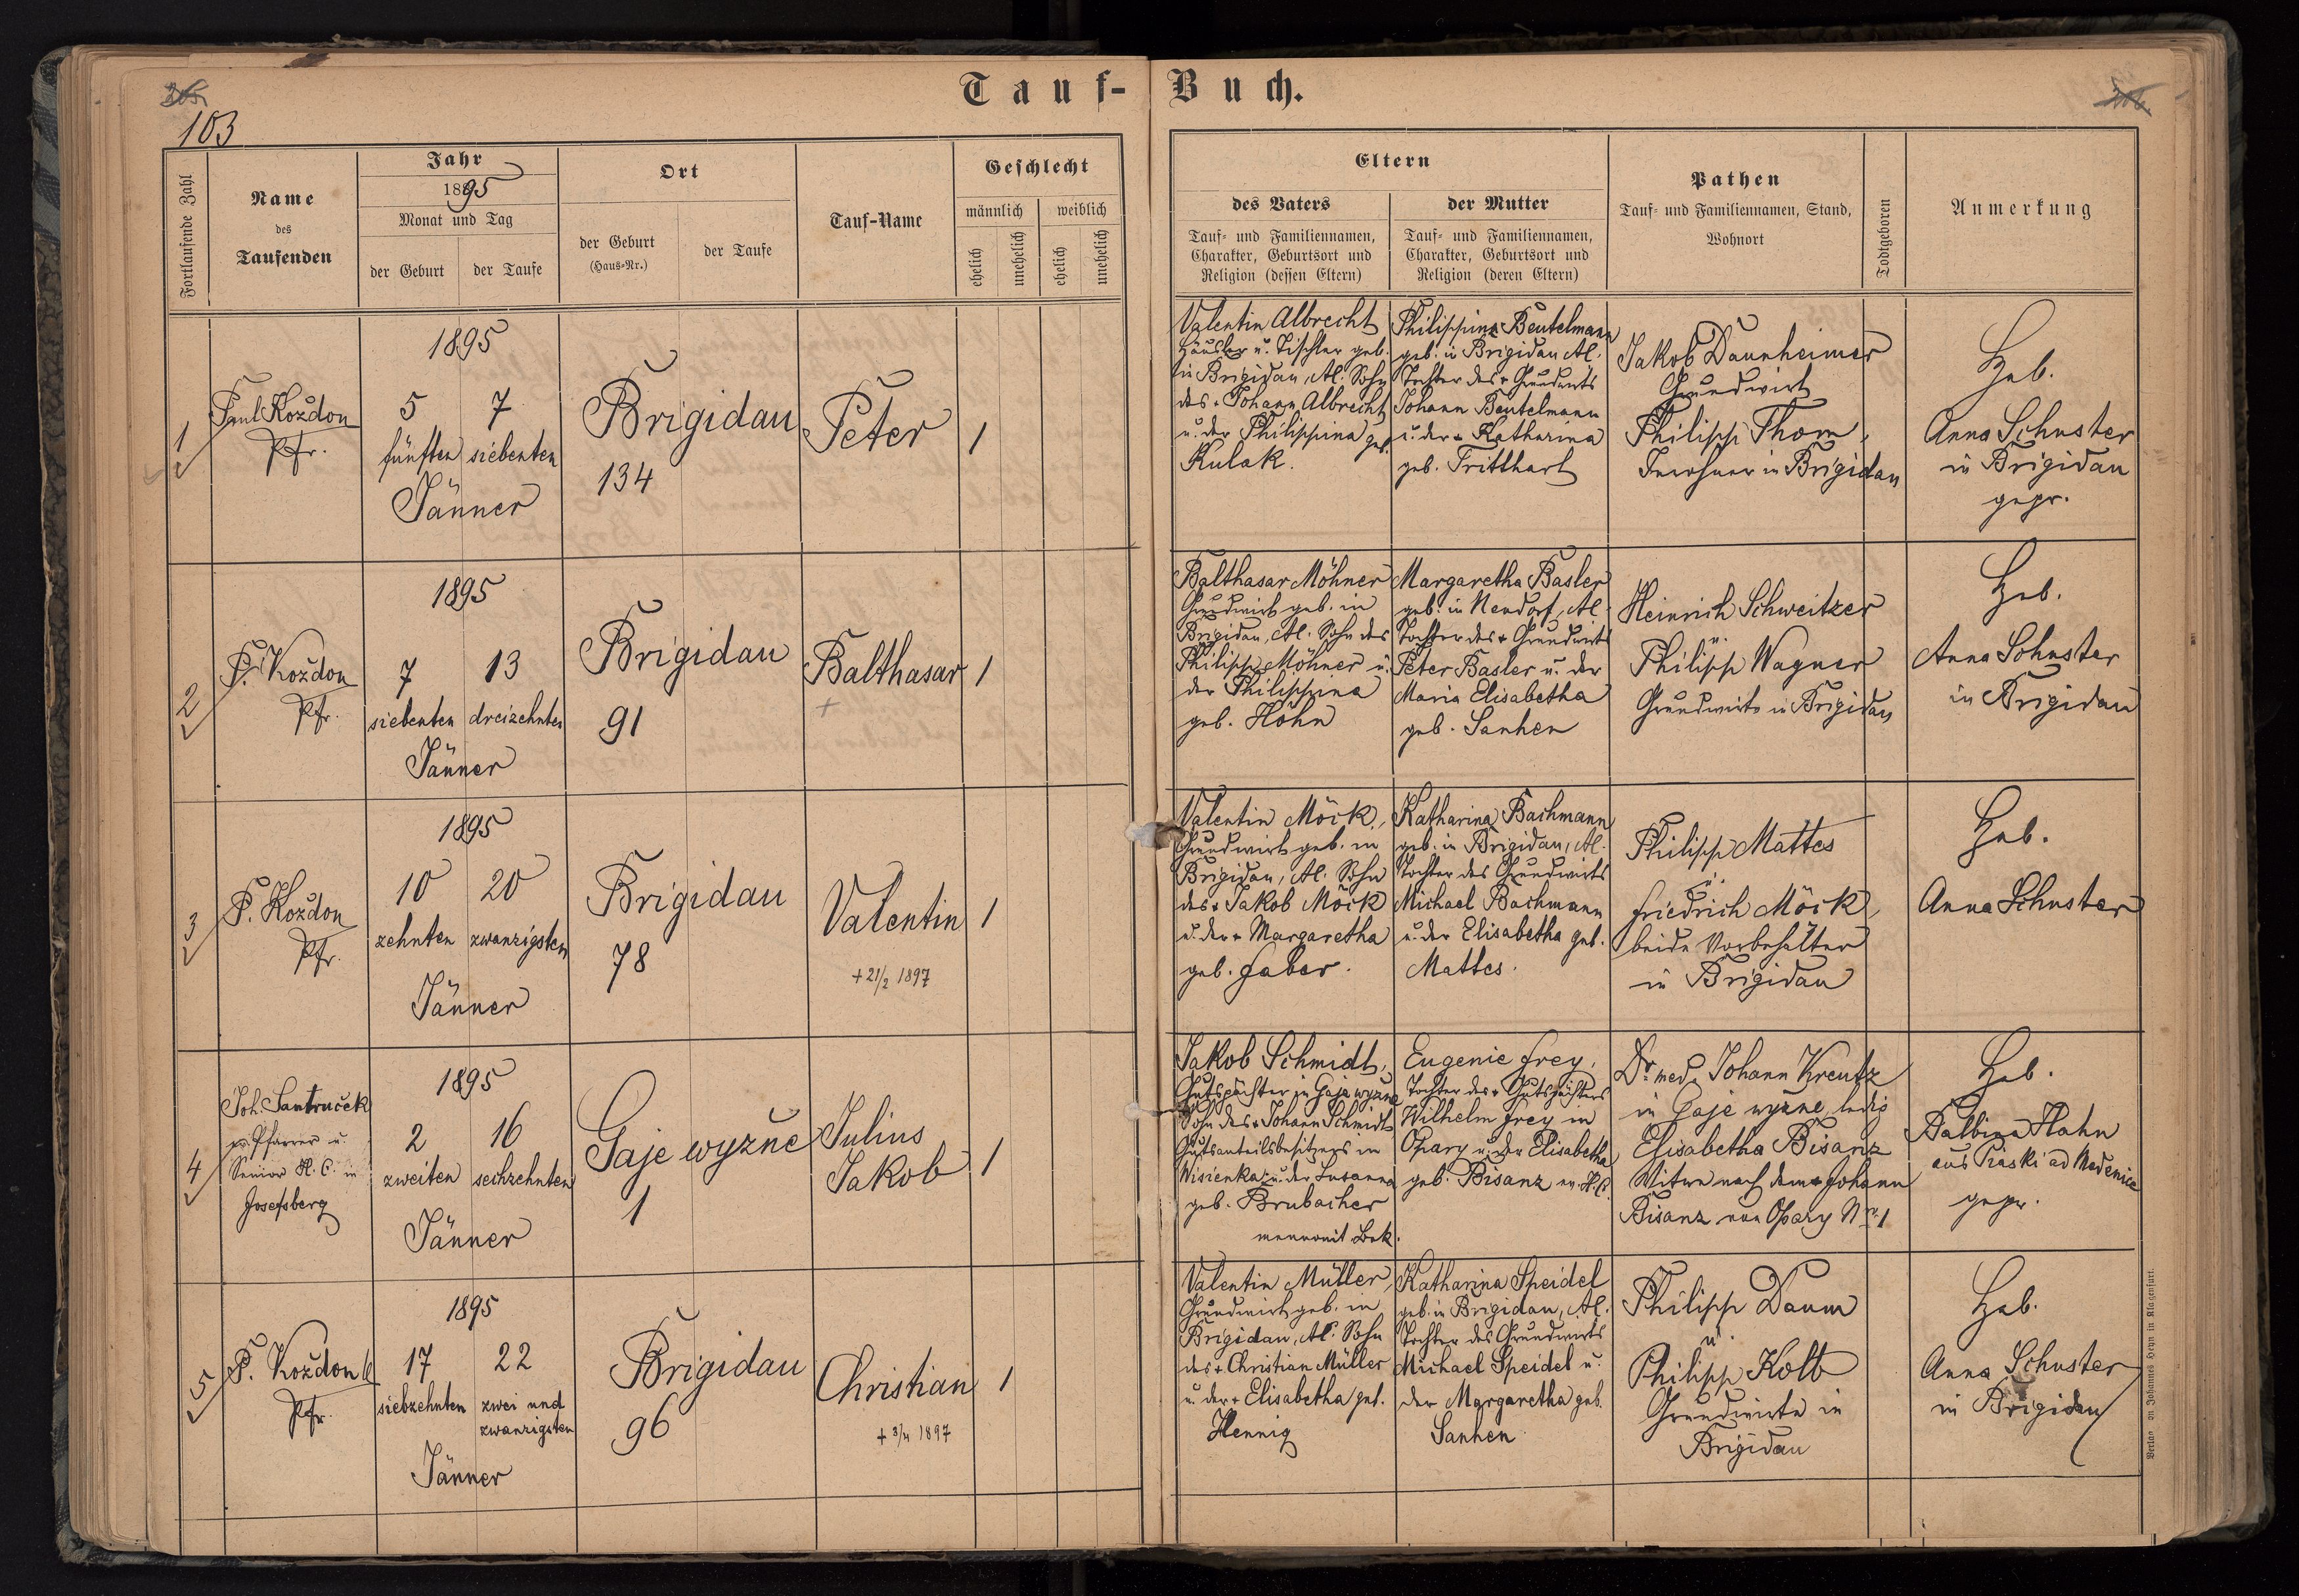 Tauf-Buch.
103
Fortlaufende Zahl
Name
des
Taufenden
Jahr
1895
Monat und Tag
der Geburt
der Taufe
Ort
der Geburt
(Haus-Nr.)
der Taufe
Tauf-Name
Geschlecht
männlich
weiblich
ehelich
unehelich
ehelich
unehelich
Eltern
des Vaters
Tauf- und Familiennamen,
Charakter, Geburtsort und
Religion (dessen Eltern)
der Mutter
Tauf- und Familiennamen,
Charakter, Geburtsort und
Religion (deren Eltern)
Pathen
Tauf- und Familiennamen, Stand,
Wohnort
Todtgeboren
Anmerkung
1
Paul Koždon
Pfr.
1895
5
7
fünften
siebenten
Jänner
Brigidau
134
Peter
1
Valentin Albrecht
Häusler u. Tischler geb.
in Brigidau, Al. Sohn
des + Johann Albrecht
u. der Philippina geb.
Kulak.
Philippina Beutelmann
geb. in Brigidau Al.
Tochter des + Grundwirts
Johann Beutelmann
u. der + Katharina
geb. Tritthart
Jakob Daunheimer
Grundwirt
Philipp Thom,
Inwohner in Brigidau
Heb.
Anna Schuster
in Brigidau
gepr.
2
P. Koždon
Pfr.
1895
7
13
siebenten
dreizehnten
Jänner
Brigidau
91
Balthasar
+
1
Balthasar Möhner
Grundwirt geb. in
Brigidau, Al. Sohn des
Philipp Möhner u.
der Philippina
geb. Höhn
Margaretha Basler
geb. in Neudorf, Al.
Tochter des + Grundwirts
Peter Basler u. der
Maria Elisabetha
geb. Sanhen
Heinrich Schweitzer
u.
Philipp Wagner
Grundwirte in Brigidau
Heb.
Anna Schuster
in Brigidau
3
P. Koždon
Pfr.
1895
10
20
zehnten
zwanzigsten
Jänner
Brigidau
78
Valentin
+ 21/2 1897
1
Valentin Möck,
Grundwirt geb. in
Brigidau, Al. Sohn
des + Jakob Möck
u. der + Margaretha
geb. Faber.
Katharina Bachmann
geb. in Brigidau, Al.
Tochter des Grundwirts
Michael Bachmann
u. der Elisabetha geb.
Mattes.
Philipp Mattes
u.
Friedrich Möck,
beide Vorbehälter
in Brigidau
Heb.
Anna Schuster
4
Joh. Santruček
ev. Pfarrer u.
Senior H. C. in
Josefsberg
1895
2
16
zweiten
sechzehnten
Jänner
Gaje wyžne
1
Julius
Jakob
1
Jakob Schmidt,
Gutspächter in Gaje wyžne
Sohn des + Johann Schmidt
Gutsanteilsbesitzers in
Wisienka u. der Susanna
geb. Brubacher
mennonit. Bek.
Eugenie Frey,
Tochter des + Gutspächters
Wilhelm Frey in
Opary u. der Elisabetha
geb. Bisanz ev. H. C.
Dr. med. Johann Kreutz
in Gaje wyžne, ledig
Elisabetha Bisanz
Witwe nach dem + Johann
Bisanz von Opary No. 1
Heb.
Balbina Hahn
aus Piaski ad Medenice
gepr.
5
P. Koždon
Pfr.
1895
17
22
siebzehnten
zwei und
zwanzigsten
Jänner
Brigidau
96
Christian
+ 3/4 1897
1
Valentin Müller,
Grundwirt geb. in
Brigidau, Al. Sohn
des + Christian Müller
u. der + Elisabetha geb.
Hennig
Katharina Speidel
geb. in Brigidau, Al.
Tochter des Grundwirts
Michael Speidel u.
der Margaretha geb.
Sanhen
Philipp Daum
u.
Philipp Kolb
Grundwirte in
Brigidau
Heb.
Anna Schuster
in Brigidau
Verlag von Johannes Heyn in Klagenfurt.